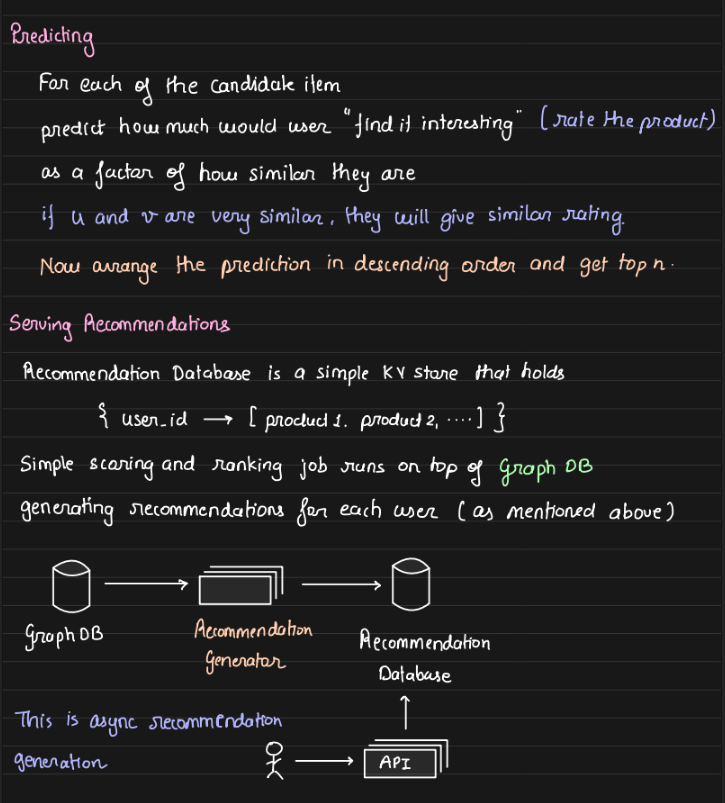 Predicting
For each of the candidate item
predict how much would user "find it interesting" (rate the product)
as a factor of how similar they are
if u and v are very similar, they will give similar rating.
Now arrange the prediction in descending order and get top n.
Serving Recommendations
Recommendation Database is a simple KV store that holds
{ user_id → [ product 1. product 2, ....] }
Simple scoring and ranking job runs on top of Graph DB
generating recommendations for each user (as mentioned above)
Graph DB
Recommendation
Generator
Recommendation
Database
This is async recommendation
generation
API